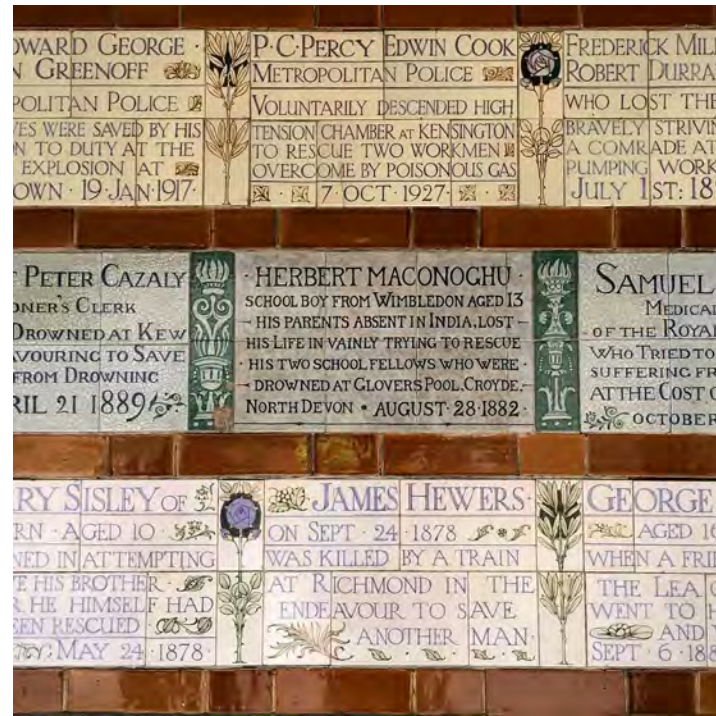 DWARD GEORGE ·
N GREENOFF
POLITAN POLICE
VES WERE SAVED BY HIS
ON TO DUTY AT THE
EXPLOSION AT
OWN · 19·JAN·1917·
P·C·PERCY EDWIN COOK
METROPOLITAN POLICE
VOLUNTARILY DESCENDED HIGH
TENSION CHAMBER AT KENSINGTON
TO RESCUE TWO WORKMEN
OVERCOME BY POISONOUS GAS
· 7 OCT · 1927 ·
FREDERICK MIL
ROBERT DURRA
WHO LOST THE
BRAVELY STRIVIN
A COMRADE AT
PUMPING WORK
JULY 1ST: 18
PETER CAZALY
ONER'S CLERK
DROWNED AT KEW
AVOURING TO SAVE
FROM DROWNING
RIL 21 1889
· HERBERT MACONOGHU ·
SCHOOL BOY FROM WIMBLEDON AGED 13
HIS PARENTS ABSENT IN INDIA, LOST
HIS LIFE IN VAINLY TRYING TO RESCUE
HIS TWO SCHOOL FELLOWS WHO WERE
DROWNED AT GLOVERS POOL, CROYDE,
NORTH DEVON • AUGUST·28·1882 ·
SAMUEL
MEDICAL
OF THE ROYA
WHO TRIED TO
SUFFERING FR
AT THE COST O
OCTOBER
RY SISLEY OF
RN · AGED 10
NED IN ATTEMPTING
E HIS BROTHER ·
R HE HIMSELF HAD
EEN RESCUED
MAY 24 · 1878 ·
· JAMES HEWERS ·
ON SEPT · 24 · 1878
WAS KILLED BY A TRAIN
AT RICHMOND IN THE
ENDEAVOUR TO SAVE
ANOTHER MAN ·
GEORGE
AGED 16
WHEN A FRIE
THE LEA
WENT TO H
AND
SEPT · 6 · 188